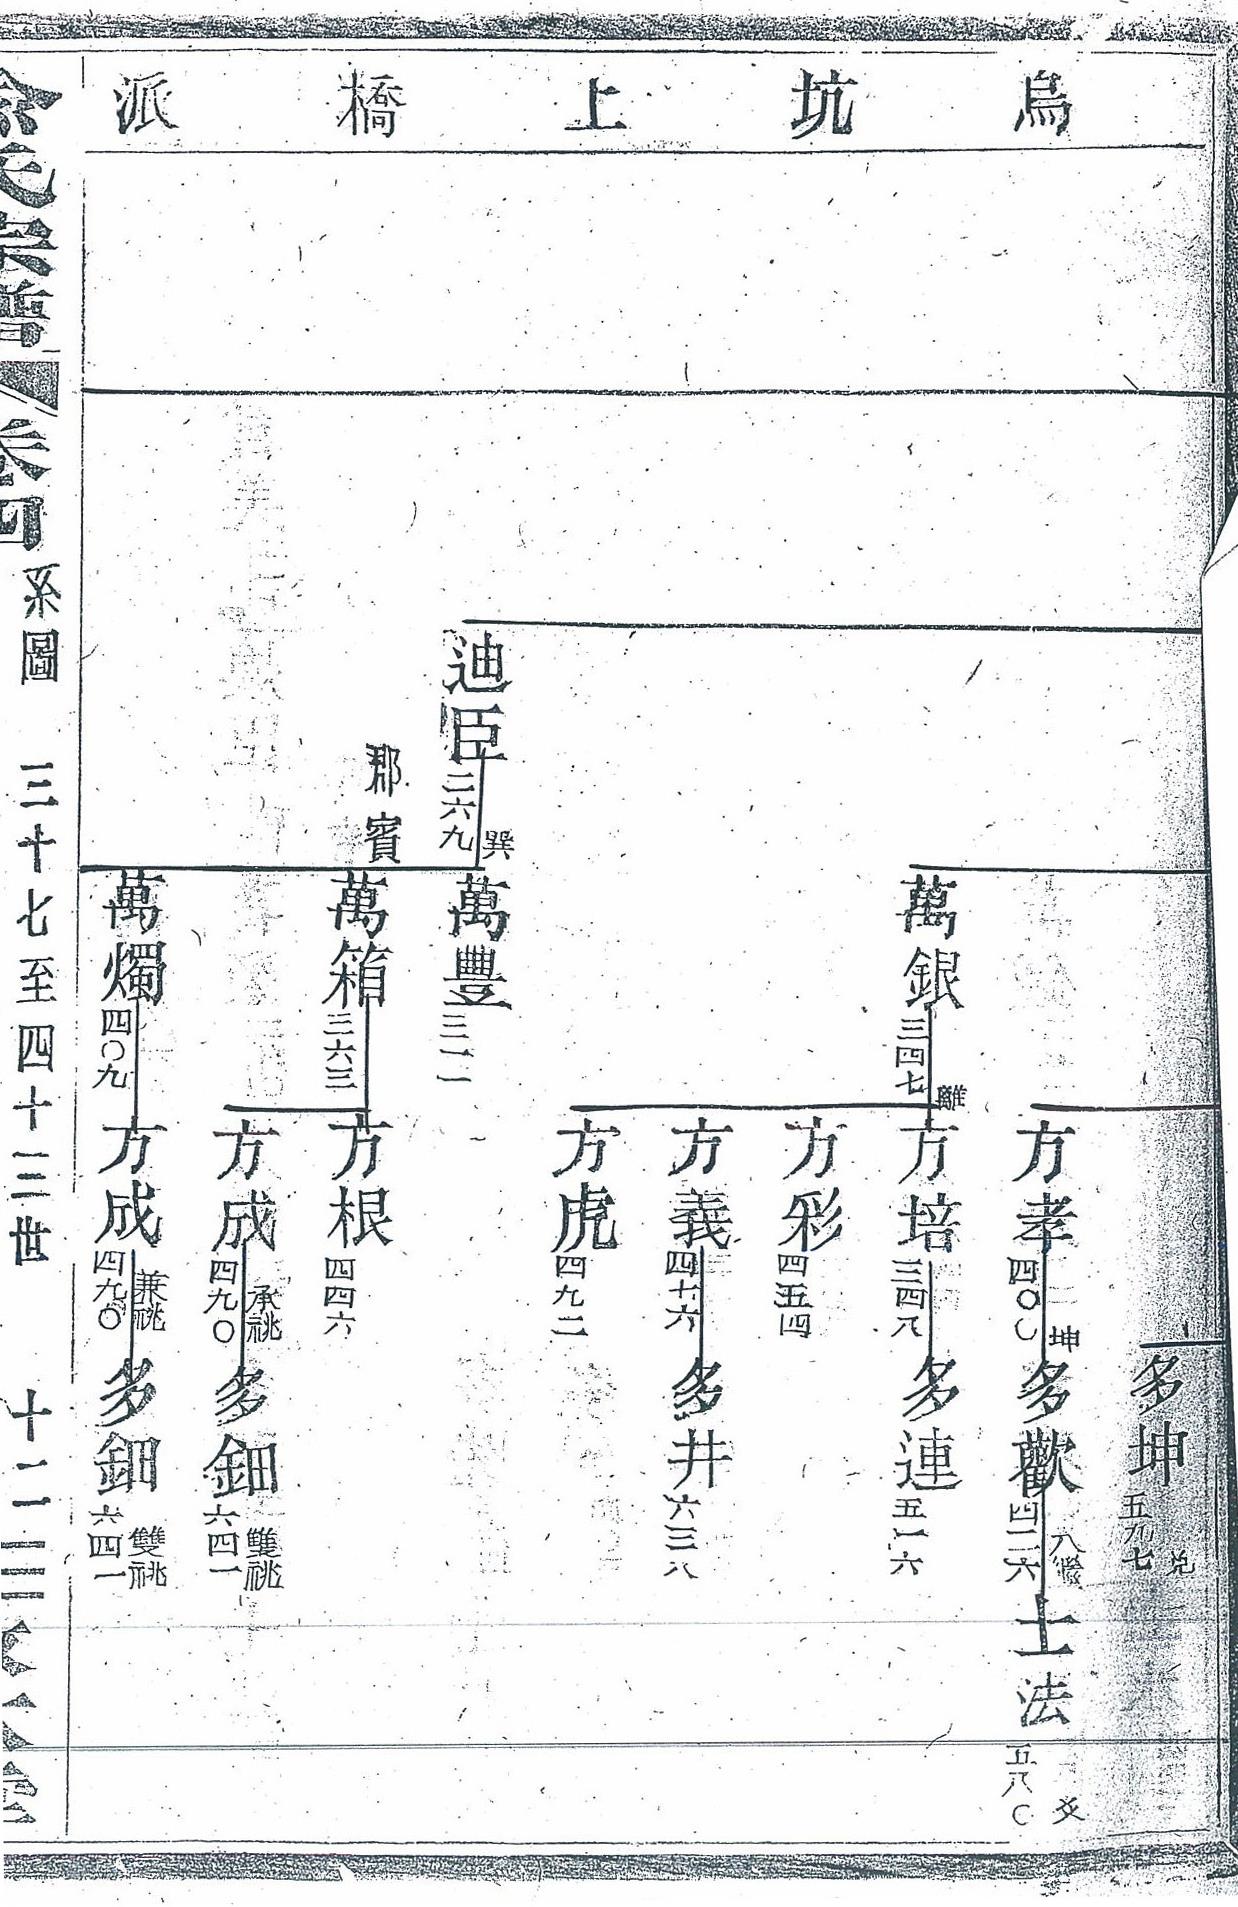 烏坑上橋派
多坤 五九七 兌
方孝 四〇〇 坤
多歡 四二六
士法 五八〇
萬銀 三四七 離
方培 三四八
多連 五一六
方彩 四五四
方義 四七六
多井 六三八
方虎 四九二
迪臣 二六九 巽
萬豐 三一一
郡賓
萬箱 三六三
方根 四四六
方成 四九〇 承祧
多鈿 六四一 雙祧
萬燭 四〇九
方成 四九〇 兼祧
多鈿 六四一 雙祧
氏宗譜 卷四 系圖 三十七至四十三世 十二